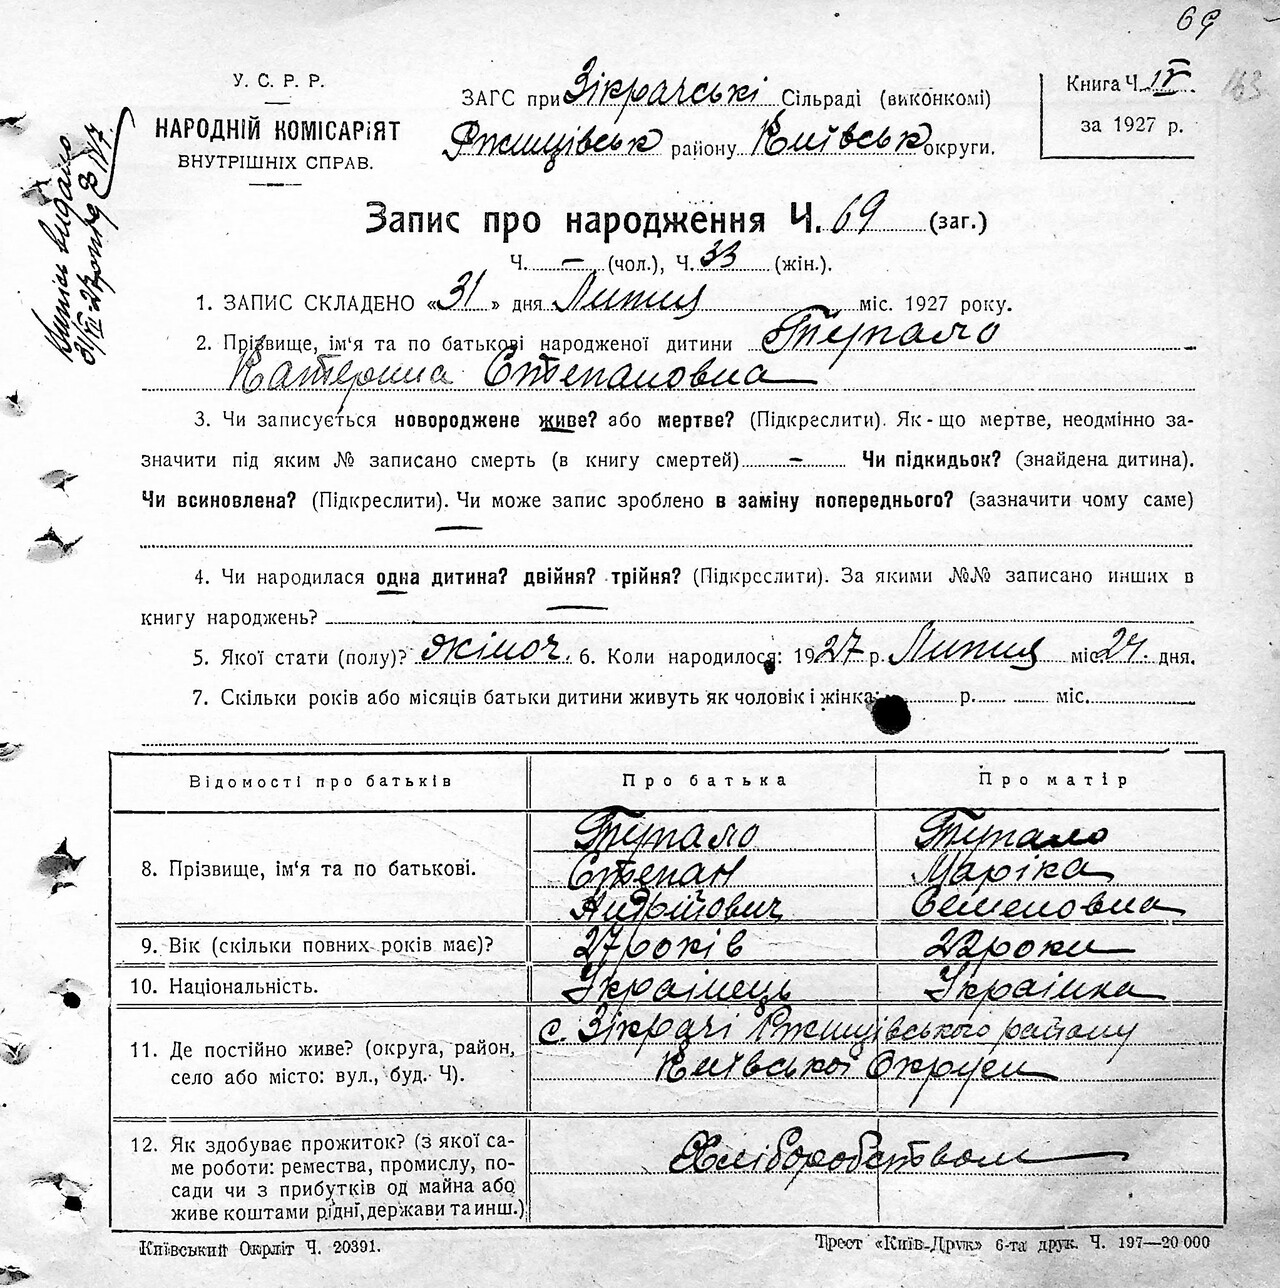 69
У. С. Р. Р.
НАРОДНІЙ КОМІСАРІЯТ
ВНУТРІШНІХ СПРАВ.
ЗАГС при Зікрачські Сільраді (виконкомі)
Ржищівськ району Київськ округи.
Книга Ч. IV
за 1927 р.
163
Випись видано
Запис про народження Ч. 69 (заг.)
Ч. — (чол.), Ч. 33 (жін.).
1. ЗАПИС СКЛАДЕНО «31» дня Липця міс. 1927 року.
2. Прізвище, ім'я та по батькові народженої дитини Тупало
Катерина Степановна
3. Чи записується новороджене живе? або мертве? (Підкреслити). Як-що мертве, неодмінно за-
значити під яким № записано смерть (в книгу смертей) — Чи підкидьок? (знайдена дитина).
Чи всиновлена? (Підкреслити). Чи може запис зроблено в заміну попереднього? (зазначити чому саме)
4. Чи народилася одна дитина? двійня? трійня? (Підкреслити). За якими №№ записано инших в
книгу народжень?
5. Якої стати (полу)? жіноч. 6. Коли народилося: 1927 р. Липця міс. 24 дня.
7. Скільки років або місяців батьки дитини живуть як чоловік і жінка: р. міс.
Відомості про батьків Про батька Про матір
8. Прізвище, ім'я та по батькові.
Тупало Тупало
Степан Маріка
Андрійович Семеновна
9. Вік (скільки повних років має)? 27 років 22 роки
10. Національність. Українець Українка
11. Де постійно живе? (округа, район,
село або місто: вул., буд. Ч).
с. Зікрачі Ржищівського району
Київської Округи
12. Як здобуває прожиток? (з якої са-
ме роботи: ремества, промислу, по-
сади чи з прибутків од майна або
живе коштами рідні, держави та инш.)
Хліборобством
Київський Окрліт Ч. 20391.
Трест «Київ-Друк» 6-та друк. Ч. 197—20 000